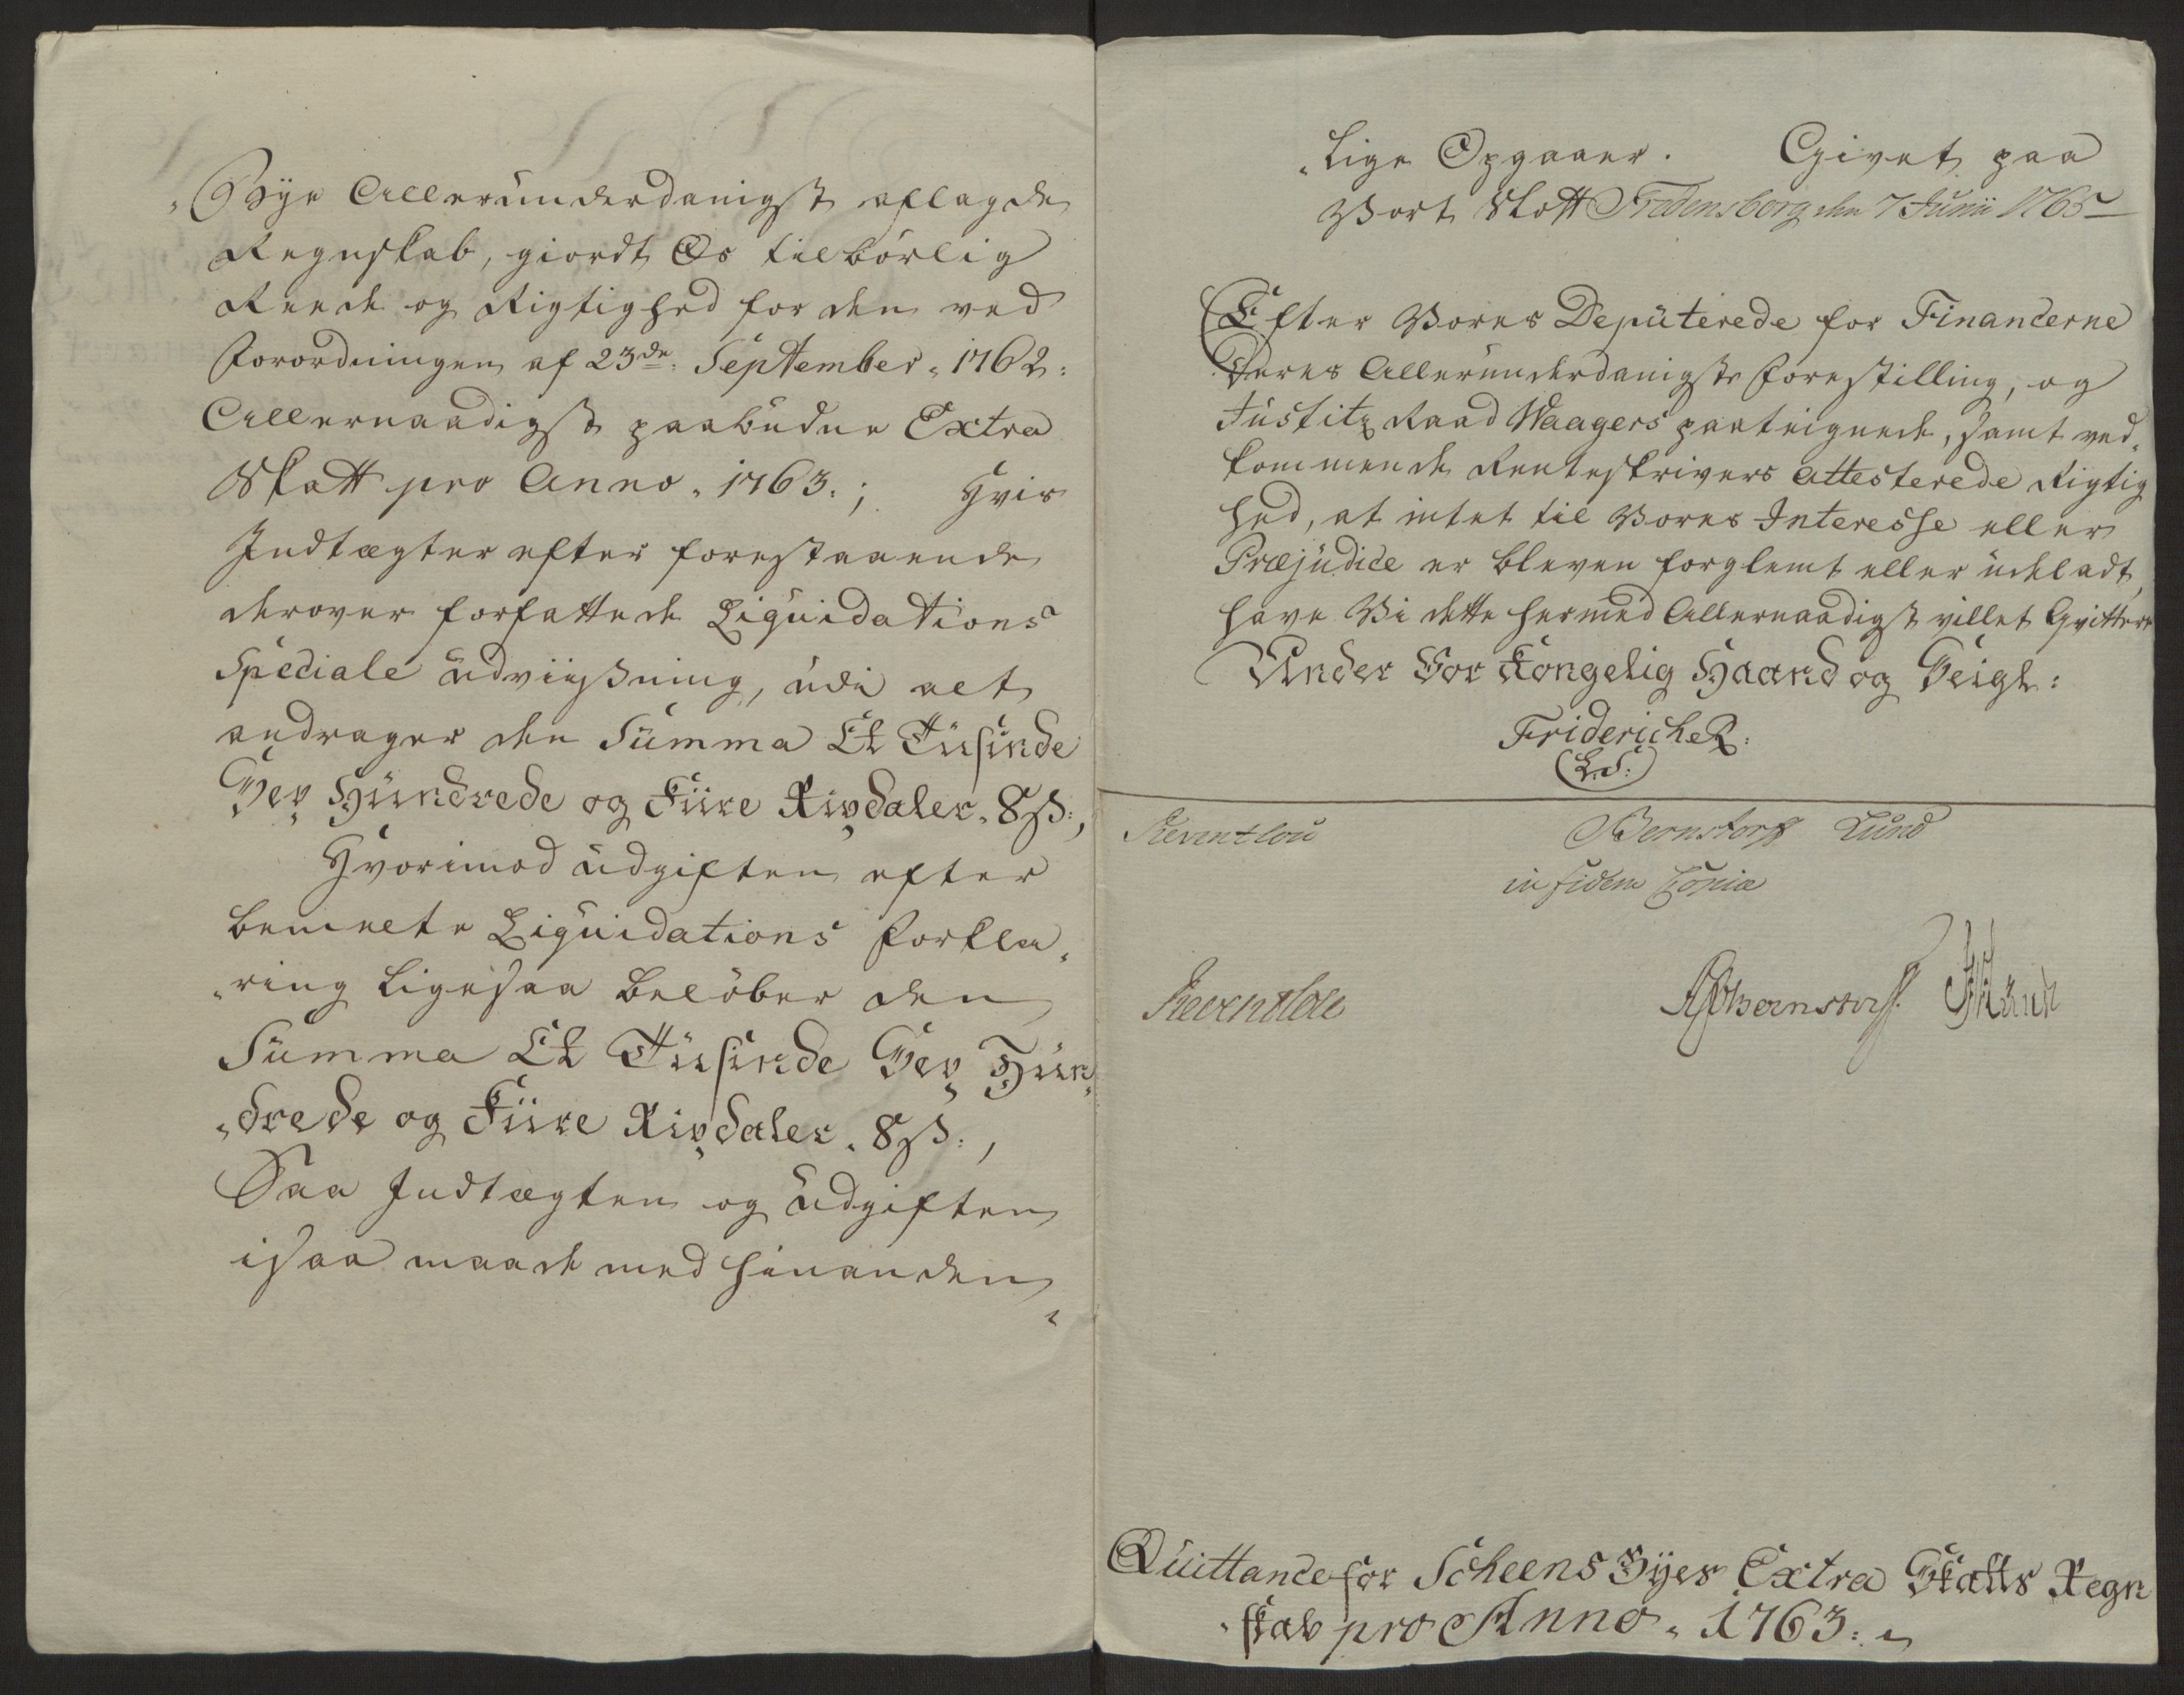 „Bÿe Allerunderdanigst aflagde
Regnskab, giordt Os tilbörlig
Reede og Rigtighed for den ved
Forordningen af 23de September „ 1762:
Allernaadigst paabudne Extra
Skatt pro Anno „ 1763.; Hvis
Indtægter efter forestaaende
derover forfattede Liquidations
Speciale Udviisning, udi alt
andrager den Summa Et Tusinde
Sex Hundrede og Fiire Rixdaler „ 8 ß:,
Hvorimod Udgiften efter
bemelte Liquidations Forkla„
„ring ligesaa belöber den
Summa Et Tusinde Sex Hun„
„drede og Fiire Rixdaler „ 8 ß:,
Saa Indtægten og Udgiften
isaa maade med hinanden
„lige Opgaaer. Givet paa
Vort Slott Fredensborg den 7 Junii 1765
Efter Vores Deputerede for Financerne
Deres Allerunderdanigste Forestilling, og
Justitz Raad Waagers paateignede, samt ved„
kommende Renteskrivers attesterede Rigtig
hed, at intet til Vores Interesse eller
Præjudice er bleven forglemt eller udeladt,
have Vi dette hermed Allernaadigst villet Qvittere
Under Vor Kongelig Haand og Seigl:
Friderich R:
(L.S.)
Reventlou Bernstorff Lund
in fidem Copiæ
Reventlou Bernstorff
Quittance for Scheens Byes Extra Skatts Regn
„skab pro Anno „ 1763: